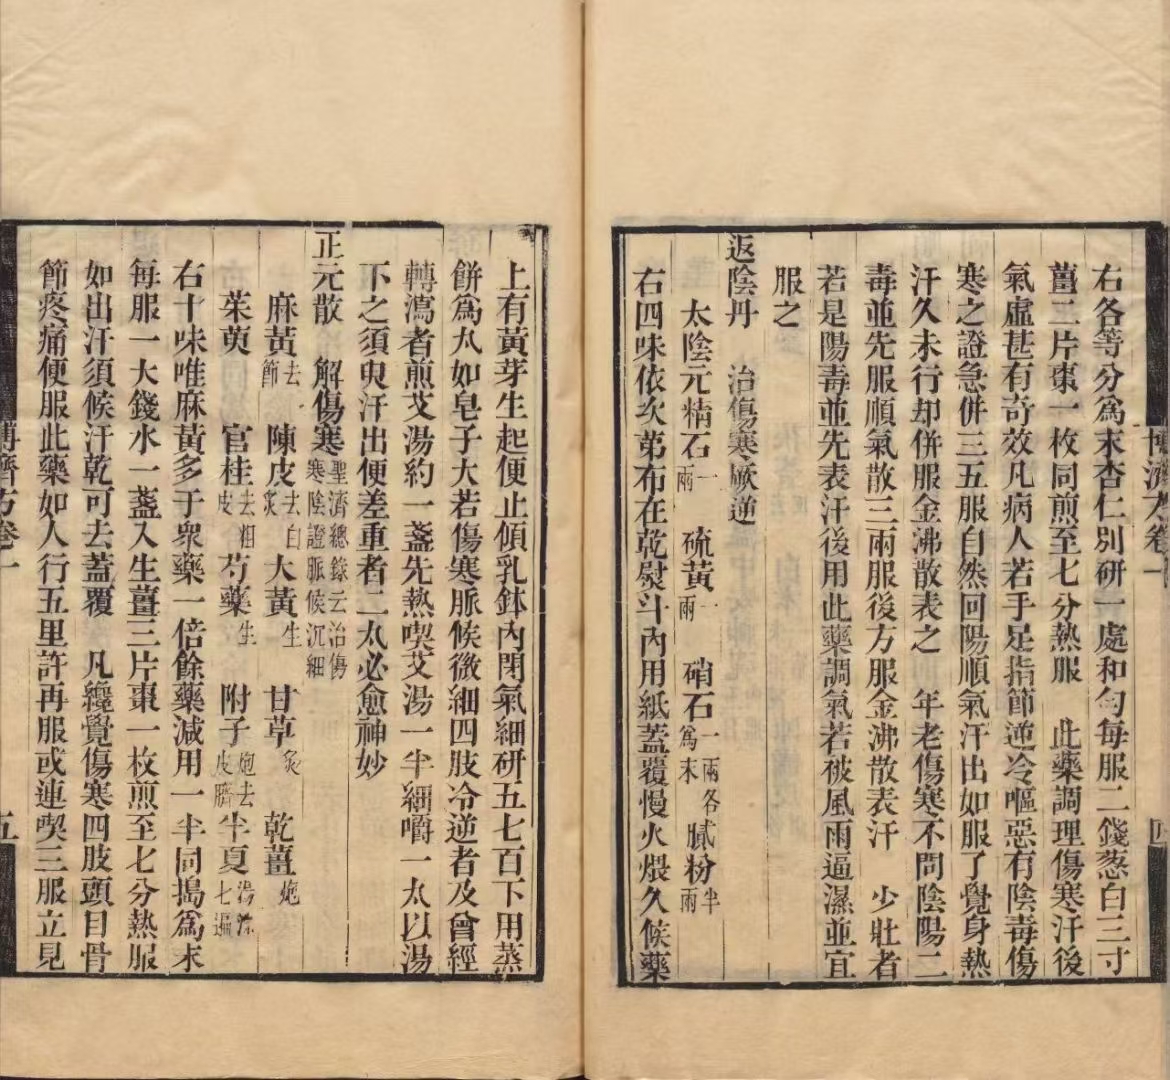 博濟方卷一
四
右各等分爲末杏仁別研一處和勻每服二錢葱白三寸
薑二片棗一枚同煎至七分熱服　此藥調理傷寒汗後
氣虛甚有奇效凡病人若手足指節逆冷嘔惡有陰毒傷
寒之證急併三五服自然回陽順氣汗出如服了覺身熱
汗久未行却併服金沸散表之　年老傷寒不問陰陽二
毒並先服順氣散三兩服後方服金沸散表汗　少壯者
若是陽毒並先表汗後用此藥調氣若被風雨逼濕並宜
服之
返陰丹　治傷寒厥逆
太陰元精石一兩　硫黃一兩　硝石一兩各爲末　膩粉半兩
右四味依次第布在乾熨斗內用紙蓋覆慢火煨久候藥
上有黃芽生起便止傾乳鉢內閉氣細研五七百下用蒸
餅爲丸如皂子大若傷寒脈候微細四肢冷逆者及曾經
轉瀉者煎艾湯約一盞先熱喫艾湯一半細嚼一丸以湯
下之須臾汗出便差重者二丸必愈神妙
正元散　解傷寒聖濟總錄云治傷寒陰證脈候沉細
麻黃去節　陳皮去白炙　大黃生　甘草炙　乾薑炮
茱萸　官桂去粗皮　芍藥生　附子炮去皮臍　半夏湯洗七遍
右十味唯麻黃多于衆藥一倍餘藥減用一半同搗爲末
每服一大錢水一盞入生薑三片棗一枚煎至七分熱服
如出汗須候汗乾可去蓋覆　凡纔覺傷寒四肢頭目骨
節疼痛便服此藥如人行五里許再服或連喫三服立見
博濟方卷一
五